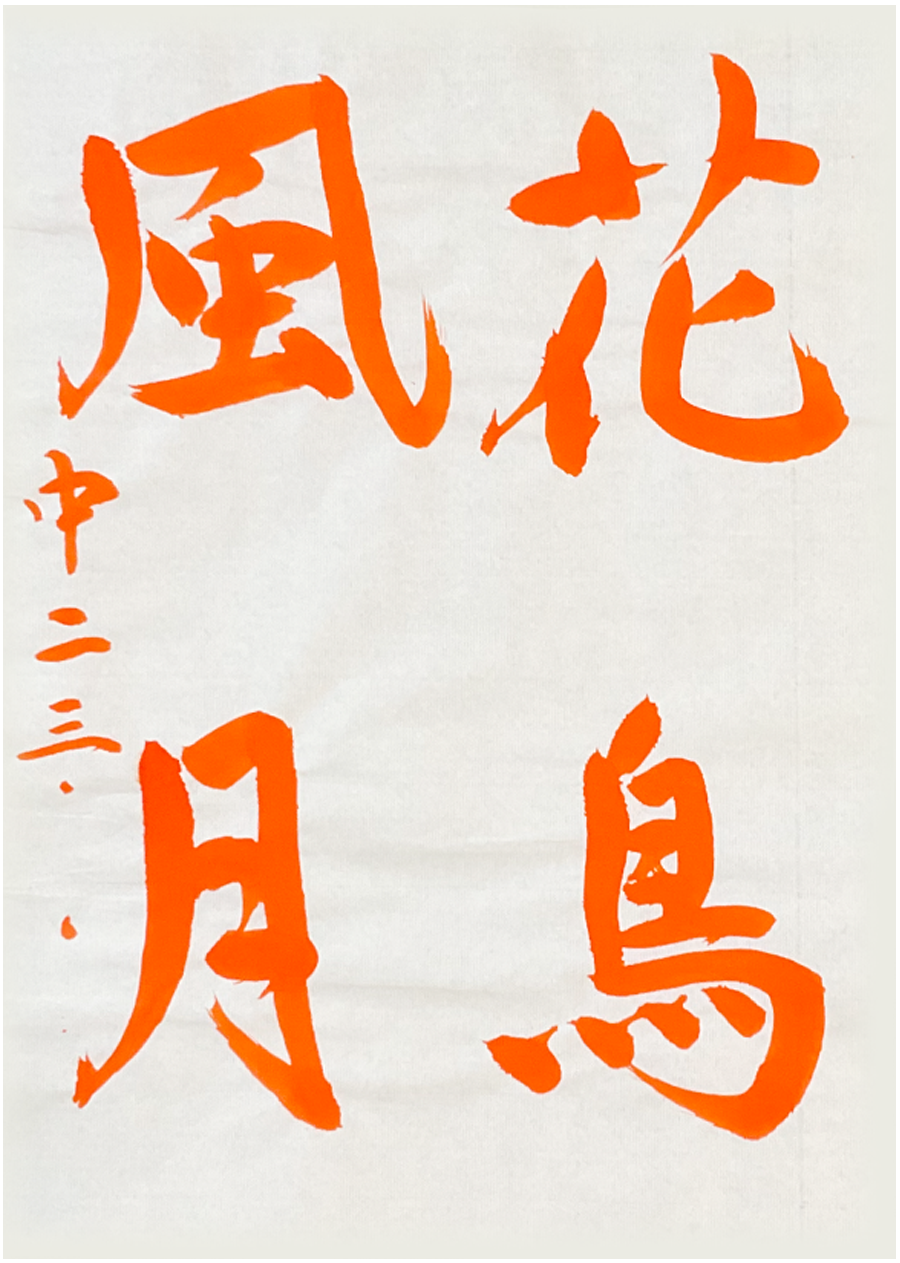 花鳥
風月
中二三・・